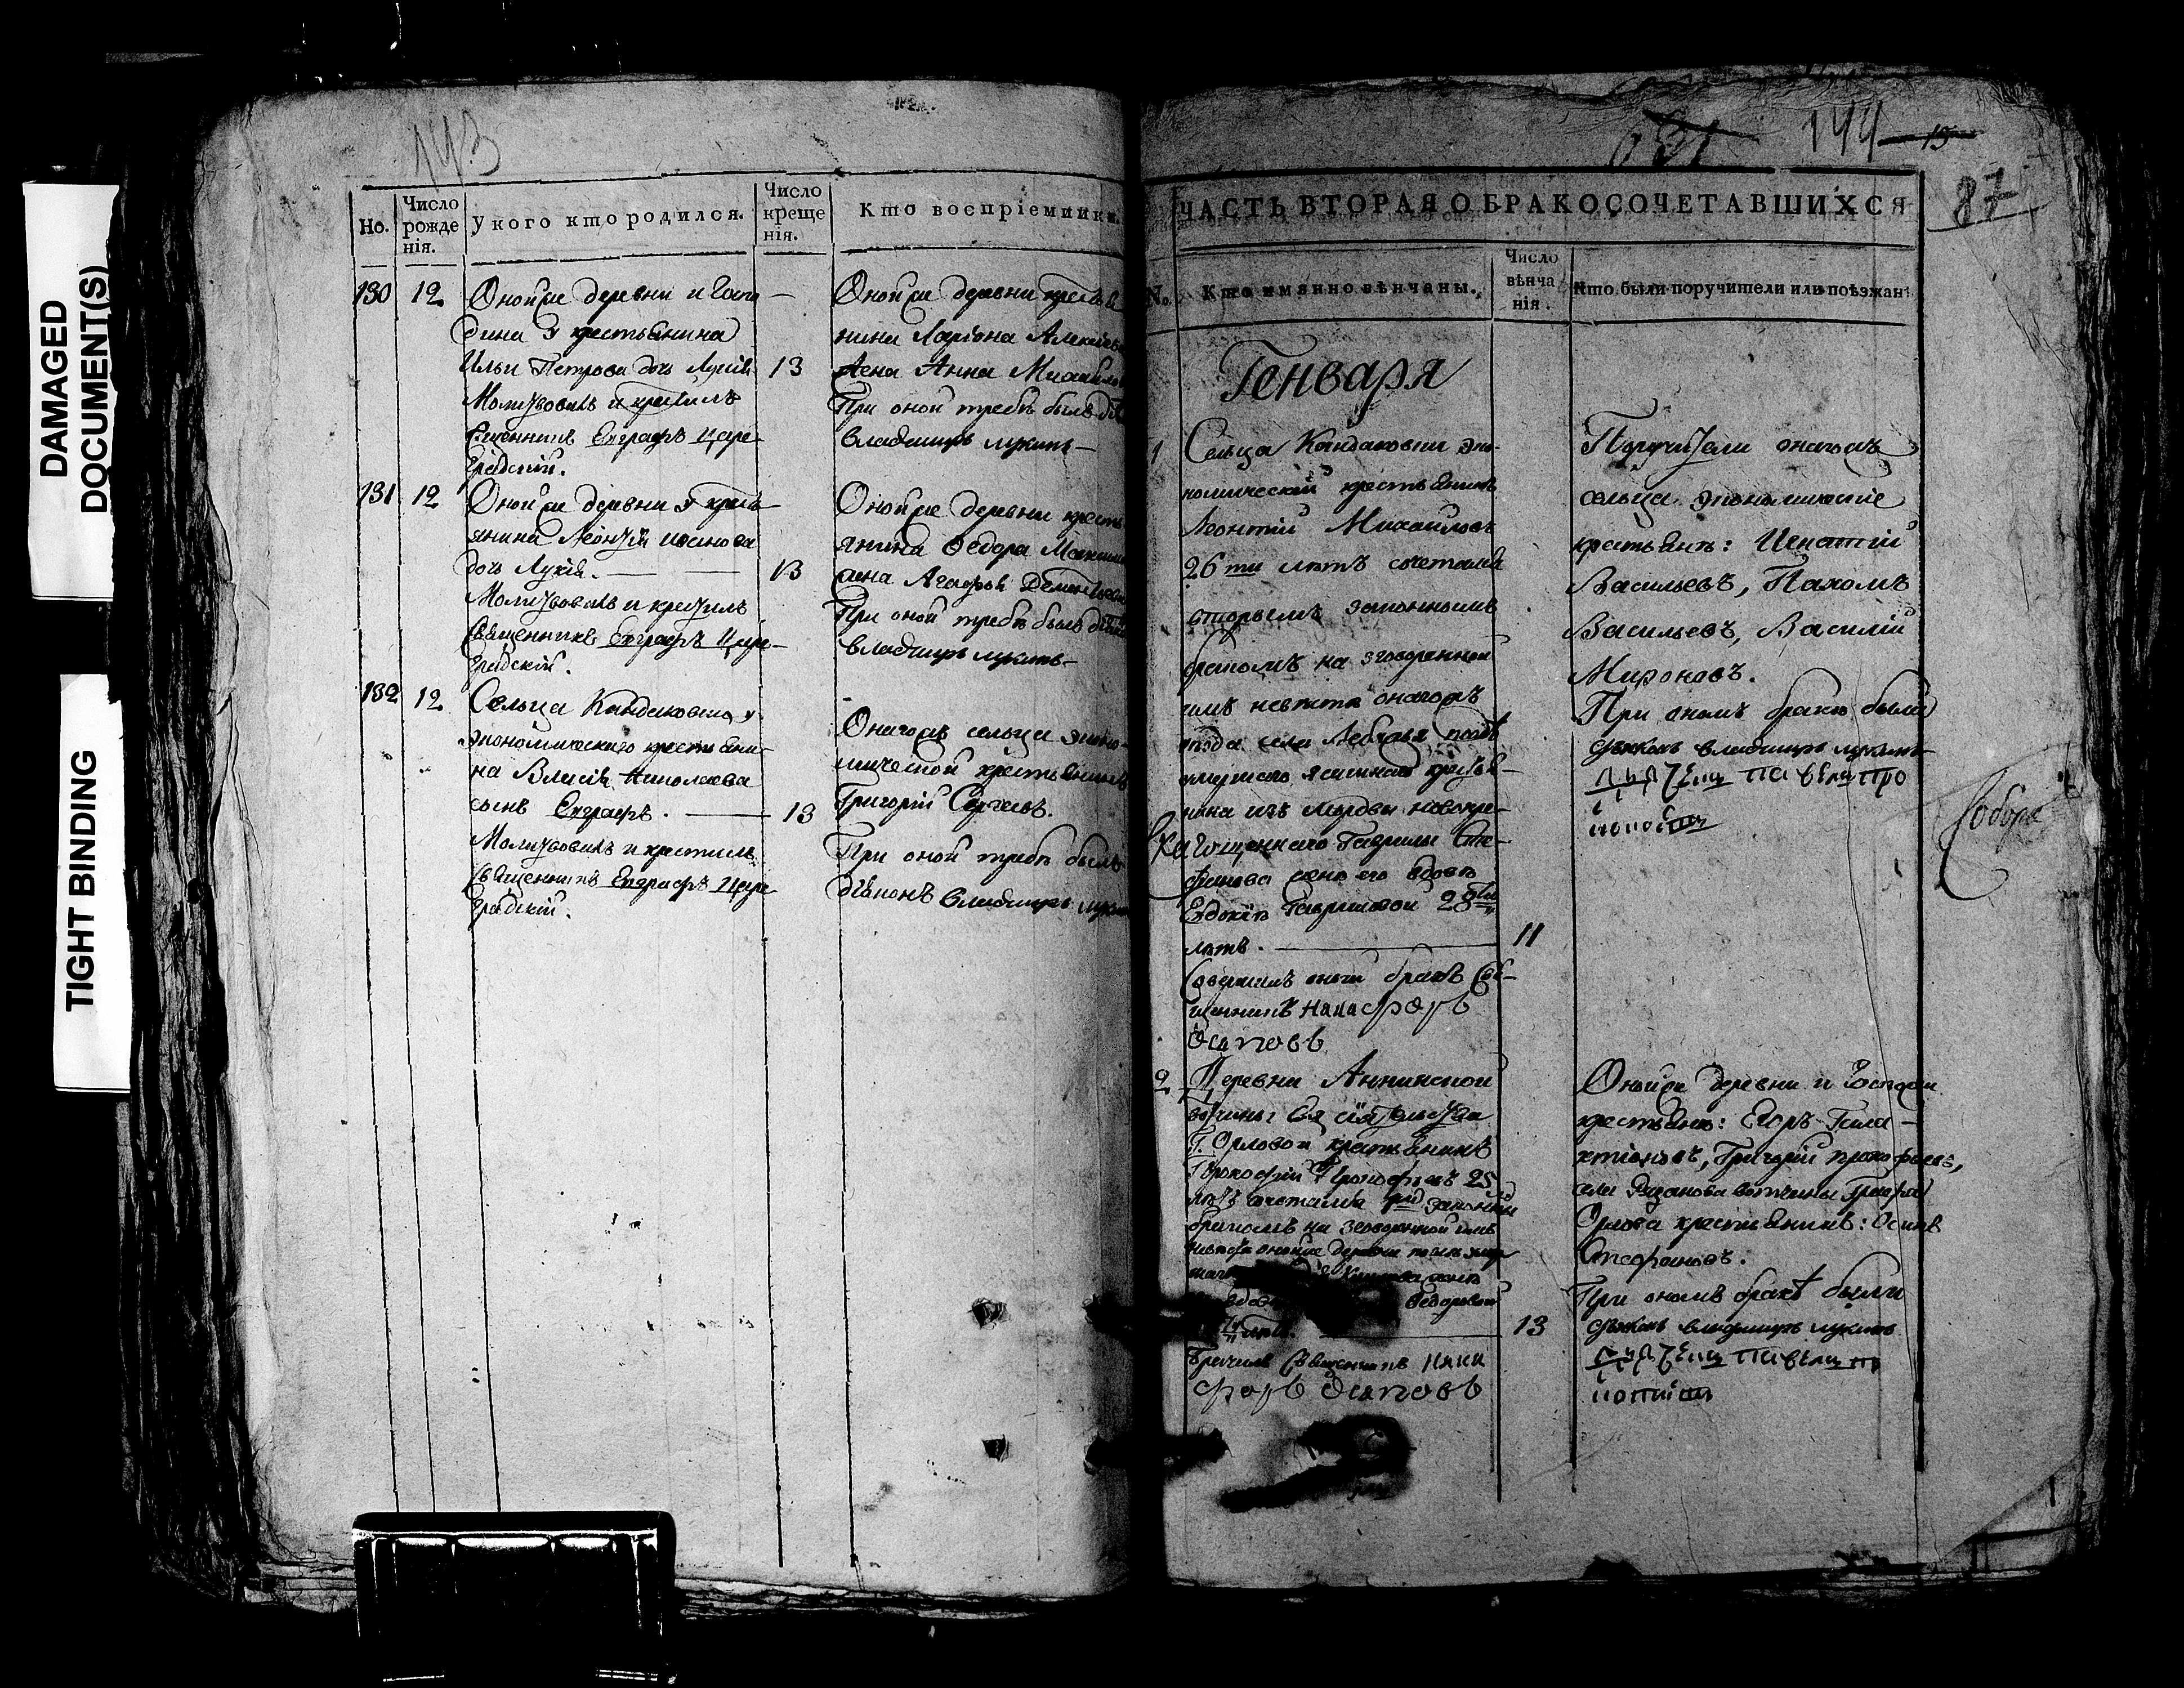 DAMAGED
DOCUMENT(S)
TIGHT BINDING
143
Но.
Число рожде нія.
У кого кто родился.
Число креще нія.
Кто воспріемники.
130 12 Оной же деревни и Госпо
дина у крестьянина
Ильи Петрова дочь Лукія 13
Молитвовалъ и крестилъ
Священникъ Евграфъ Царе-
градскій.
Оной же деревни крестья
нина Ларіона Алексѣева
жена Анна Михайлова
При оной требѣ былъ
Владимиръ Лукинъ
131 12 Оной же деревни у кресть
янина Леонтія
дочь Лукія. 13
Молитвовалъ и крестилъ
Священникъ Евграфъ Царе-
градскій.
Оной же деревни кресть
янина Федора
жена Агафья Дементьева
При оной требѣ былъ
Владимиръ Лукинъ
132 12 Сельца Кандаковки у
экономическаго крестьяни-
на Власія Николаева
сынъ Евграфъ. 13
Молитвовалъ и крестилъ
Священникъ Евграфъ Царе
градскій.
Онагожъ сельца эконо-
мической крестьянинъ
Григорій Сергѣевъ.
При оной требѣ былъ
діаконъ Владимиръ
144
15
87
ЧАСТЬ ВТОРАЯ О БРАКОСОЧЕТАВШИХСЯ
No.
Кто имянно вѣнчаны.
Число вѣнча нія.
Кто были поручители или поѣзжан
Генваря
1 Сельца Кандаковки эко-
номической крестьянинъ
Леонтій Михайловъ
26 ти лѣтъ сочетался
вторымъ законнымъ
бракомъ на зговоренной
имъ невѣстѣ онагожъ
села послѣ
умершаго ясашнаго крестья-
нина изъ мордвы новокре-
щеннаго Гаврилы Сте-
фанова женѣ его вдовѣ
Евдокіи Гавриловой 28
лѣтъ. 11
Совершилъ оный бракъ Свя-
щенникъ Никифоръ
Осиповъ
Поручители онагожъ
сельца экономические
крестьянъ: Игнатій
Васильевъ, Пахомъ
Васильевъ, Василій
Мироновъ.
При ономъ бракѣ были
дьяконъ Владимиръ Лукинъ
Павелъ Про
копіевъ
Собора
2 Деревни Аннинской
вотчины Ея Сіятельства
Г. Орловой крестьянинъ
Прокофій Прокофьевъ 25
лѣтъ сочетался законнымъ
бракомъ на зговоренной имъ
невѣстѣ оной же деревни послѣ умер
Федоровой
13
Вѣнчалъ Священникъ Ники
форъ Осиповъ
Оной же деревни и Господи
крестьянъ: Егоръ Гала-
ктіоновъ, Григорій Прокофьевъ,
села Рязанова вотчины Графа
Орлова крестьянинъ: Осипъ
Стефановъ.
При ономъ бракѣ были
дьяконъ Владимиръ Лукинъ
Павелъ Про
копіевъ